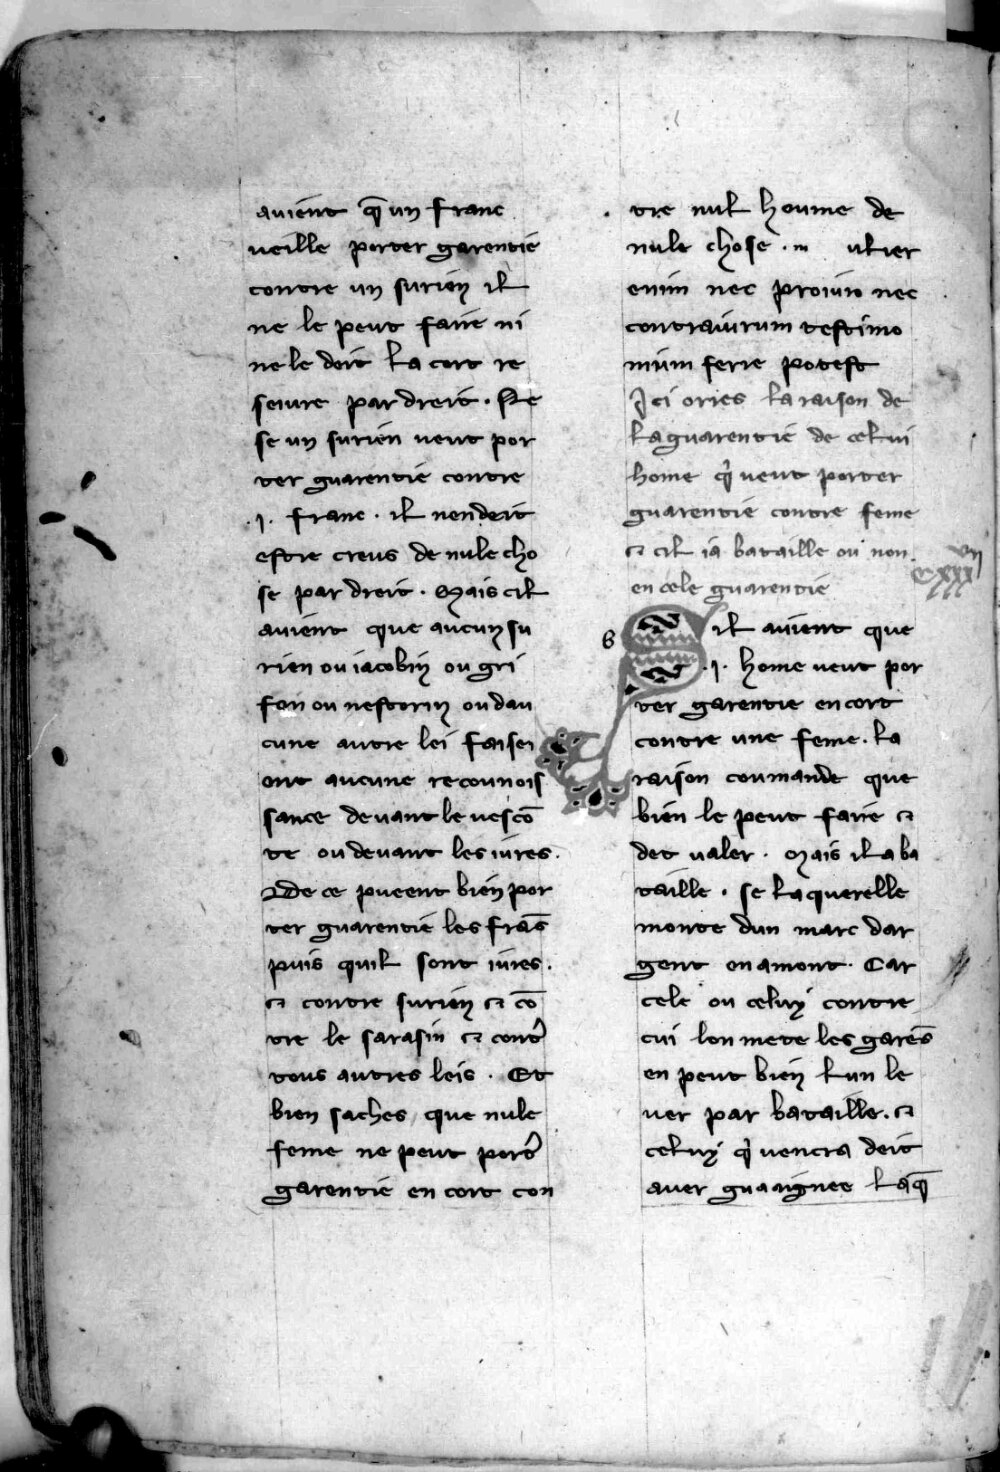 auient q̃ un franc
ueille porter garentie
contre un surien il
ne le peut faire ni
ne le doit la cort re
seiure par dreit. Ne
se un surien ueut por
ter guarentie contre
.i. franc. il nendeit
estre creus de nule cho
se par dreit. Mais cil
auient que aucun su
rien ou iacobin ou gri
fon ou nestorin ou dau
cune autre lei faisei
ent aucune recounois
sance deuant le uescõ
te ou deuant les iures.
De ce pueent bien por
ter guarentie les frãs
puis quil sont iures.
⁊ contre surien ⁊ cõ
tre le sarasin ⁊ cont᷑
tous autres leis. Et
bien saches que nule
feme ne peut port᷑
garentie en cort con
tre nul houme de
nule chose.
enim nec prouiro nec
contrauirum testimo
nium ferre potest
Ici ories la raison de
la guarentie de celui
home q̇ ueut porter
guarentie contre feme
⁊ cil ia bataille ou non
en cele guarentie
cxxx vii
s Sil auient que
.i. home ueut por
ter garentie en cort
contre une feme. la
raison coumande que
bien le peut faire ⁊
det ualer. Mais il a ba
taille. se la querelle
monte dun marc dar
gent en amont. Car
cele ou celuy contre
cui lon mete les garẽs
en peut bien lun le
uer par bataille. ⁊
celuy q̇ uencra deit
auer guaignee la q̃